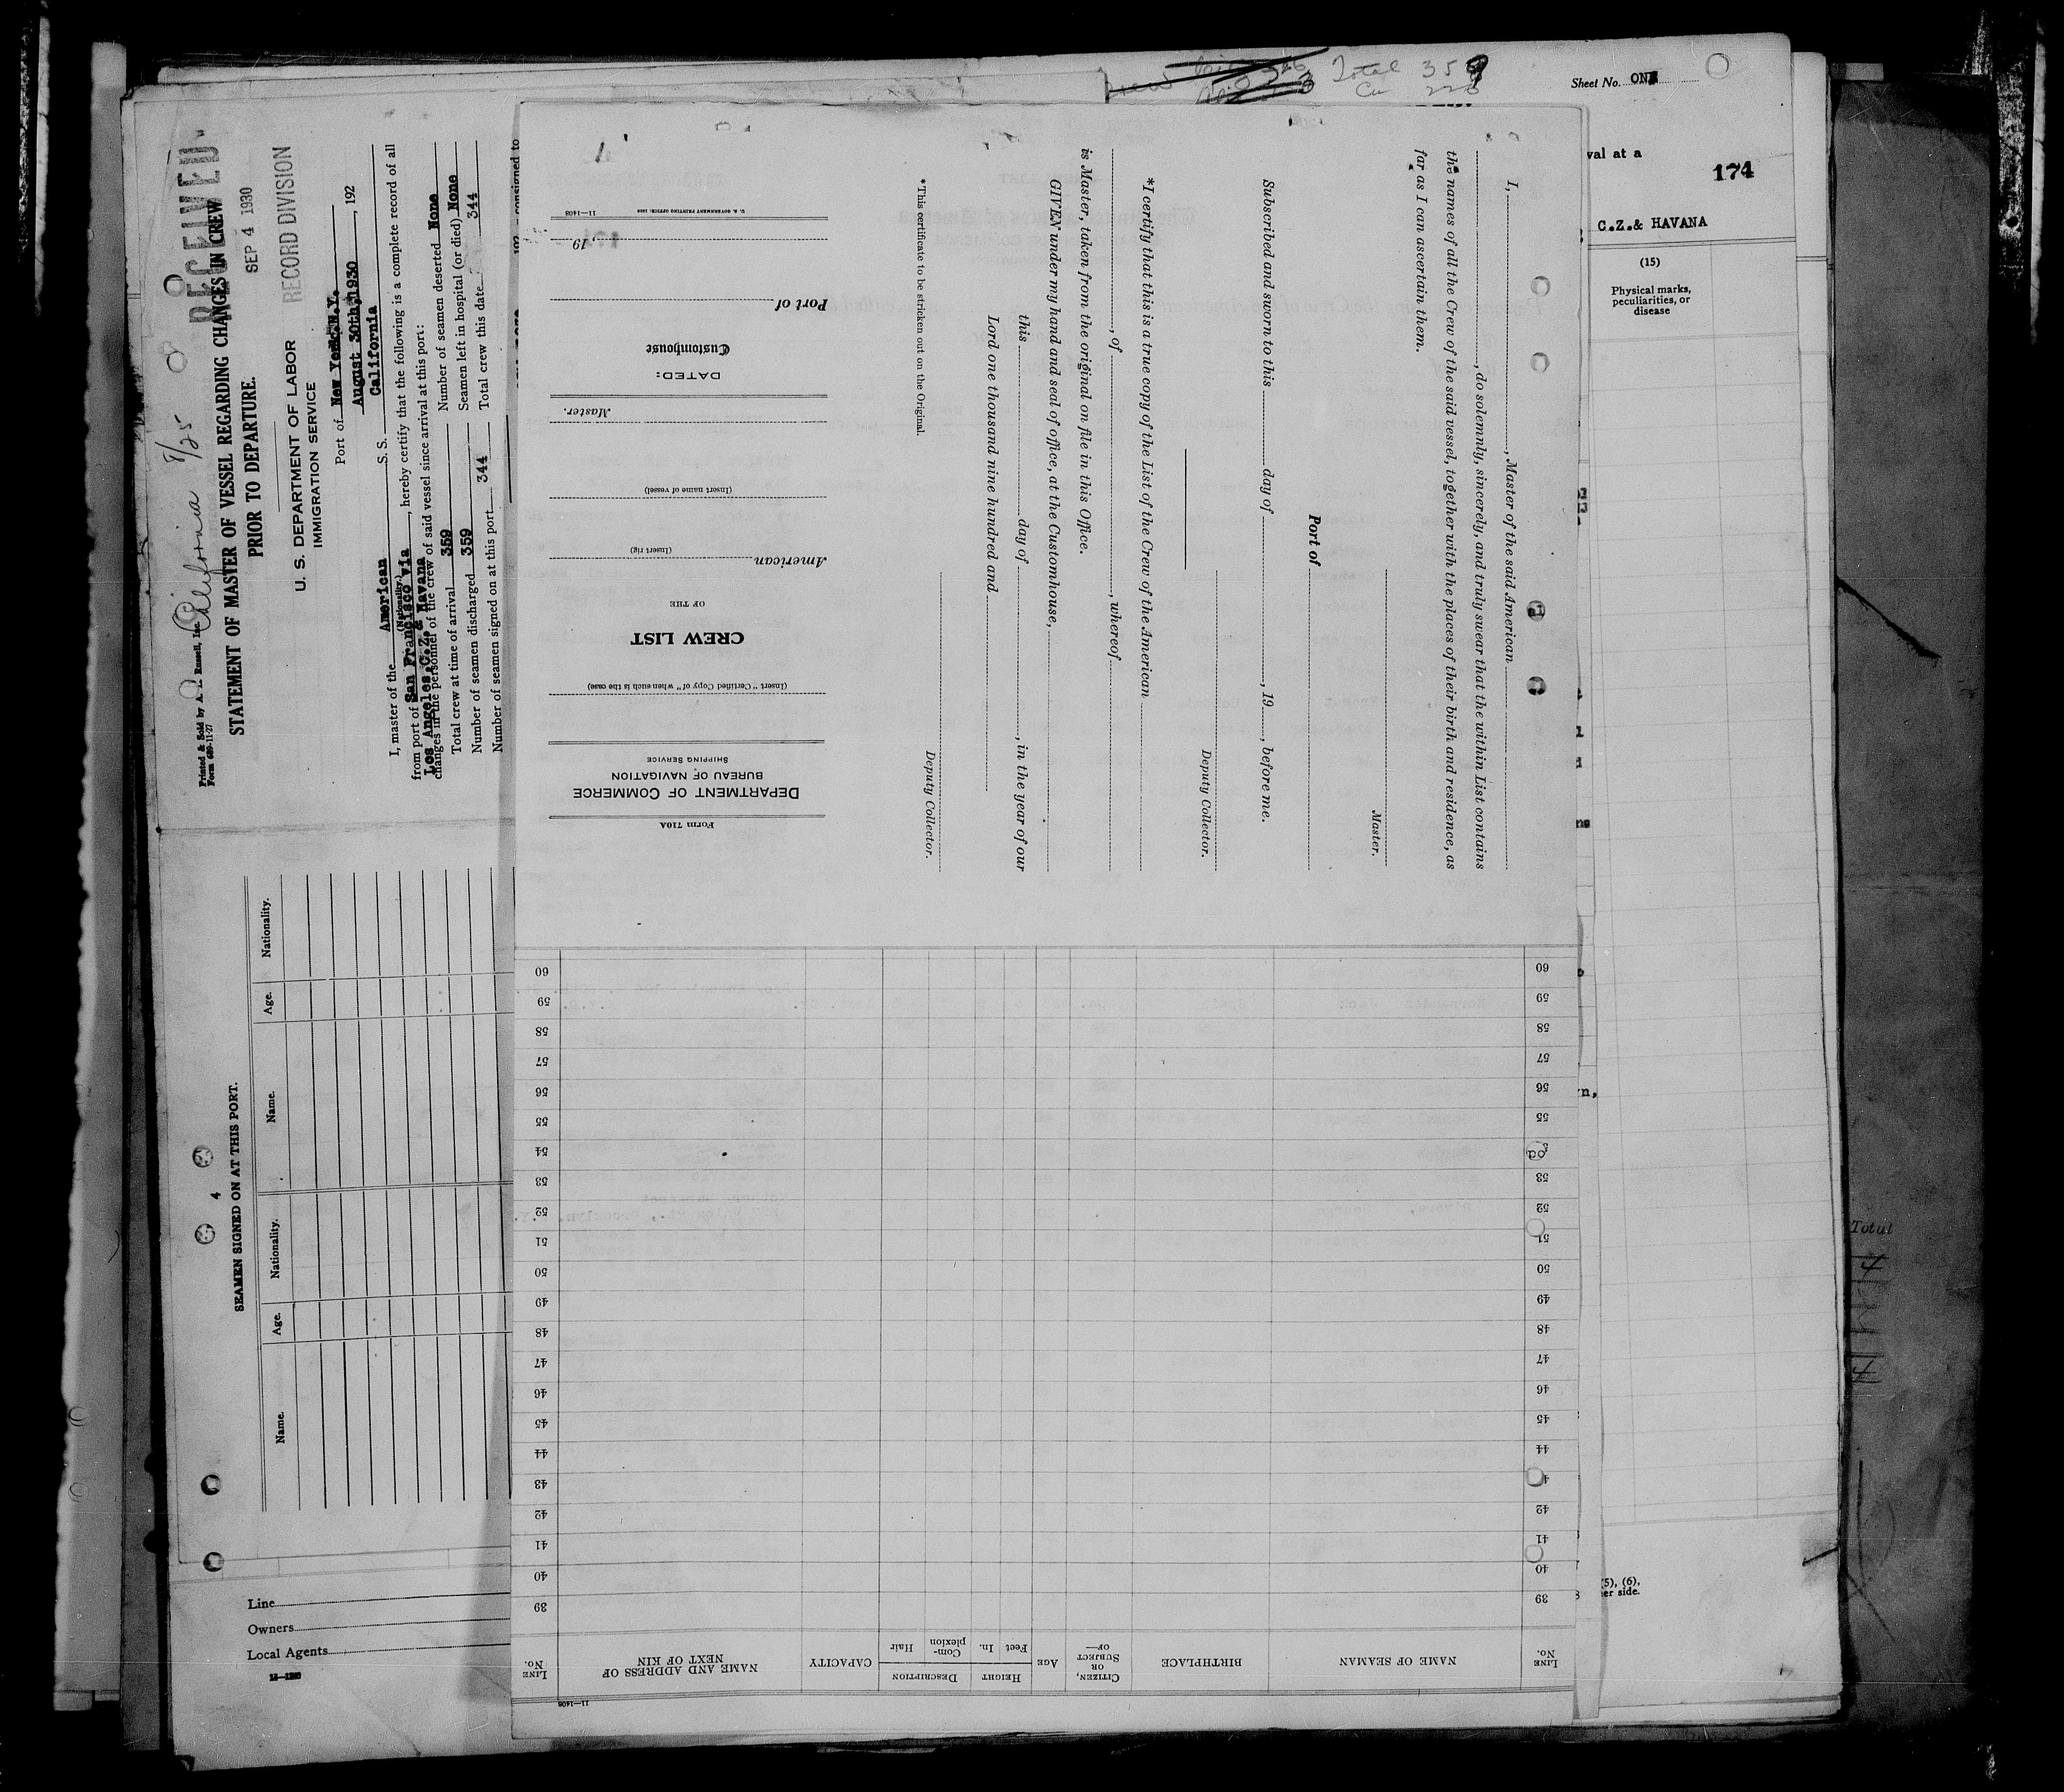 Total 359
Sheet No. ONE
val at a
174
C.Z.& HAVANA
(15)
Physical marks,
peculiarities, or
disease
(5), (6),
er side.
Total
4
4
Printed & Sold by A. P. Russell, Inc.
Form 689-11-27
California 8/25
RECEIVED
SEP 4 1930
RECORD DIVISION
STATEMENT OF MASTER OF VESSEL REGARDING CHANGES IN CREW
PRIOR TO DEPARTURE.
U. S. DEPARTMENT OF LABOR
IMMIGRATION SERVICE
Port of New York, N.Y.
August 30th, 1930, 192
I, master of the American S. S. California
(Nationality.)
from port of San Francisco via, hereby certify that the following is a complete record of all
Los Angeles, C.Z. & Havana
changes in the personnel of the crew of said vessel since arrival at this port:
Total crew at time of arrival 359 Number of seamen deserted None
Number of seamen discharged 359 Seamen left in hospital (or died) None
Number of seamen signed on at this port 344 Total crew this date 344
4
SEAMEN SIGNED ON AT THIS PORT.
Name. Age. Nationality. Name. Age. Nationality.
Line
Owners
Local Agents
I, , Master of the said American
, do solemnly, sincerely, and truly swear that the within List contains
the names of all the Crew of the said vessel, together with the places of their birth and residence, as
far as I can ascertain them.
Master.
Port of
Subscribed and sworn to this day of , 19 , before me.
Deputy Collector.
*I certify that this is a true copy of the List of the Crew of the American
, of , whereof
is Master, taken from the original on file in this Office.
GIVEN under my hand and seal of office, at the Customhouse,
this day of , in the year of our
Lord one thousand nine hundred and
Deputy Collector.
*This certificate to be stricken out on the Original.
Form 710A
DEPARTMENT OF COMMERCE
BUREAU OF NAVIGATION
SHIPPING SERVICE
(Insert "Certified Copy of" when such is the case)
CREW LIST
OF THE
American
(Insert rig)
(Insert name of vessel)
Master.
DATED:
Customhouse
Port of
, 19
11—1408
11—1408
LINE No. NAME OF SEAMAN BIRTHPLACE CITIZEN, OR SUBJECT OF— AGE HEIGHT Feet In. DESCRIPTION Complexion Hair CAPACITY NAME AND ADDRESS OF NEXT OF KIN LINE No.
39 39
40 40
41 41
42 42
43
44 44
45 45
46 46
47 47
48 48
49 49
50 50
51 51
52 52
53 53
54
55 55
56 56
57 57
58 58
59 59
60 60